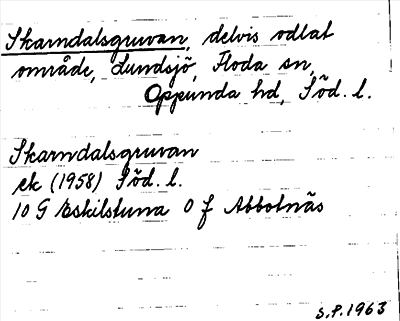 Skarndalsgruvan, delvis odlat
område, Lundsjö, Floda sn,
Oppunda hd, Söd. l.
Skarndalsgruvan
ek (1958) Söd. l.
10 G Eskilstuna 0 f Abbotnäs
S.P. 1963